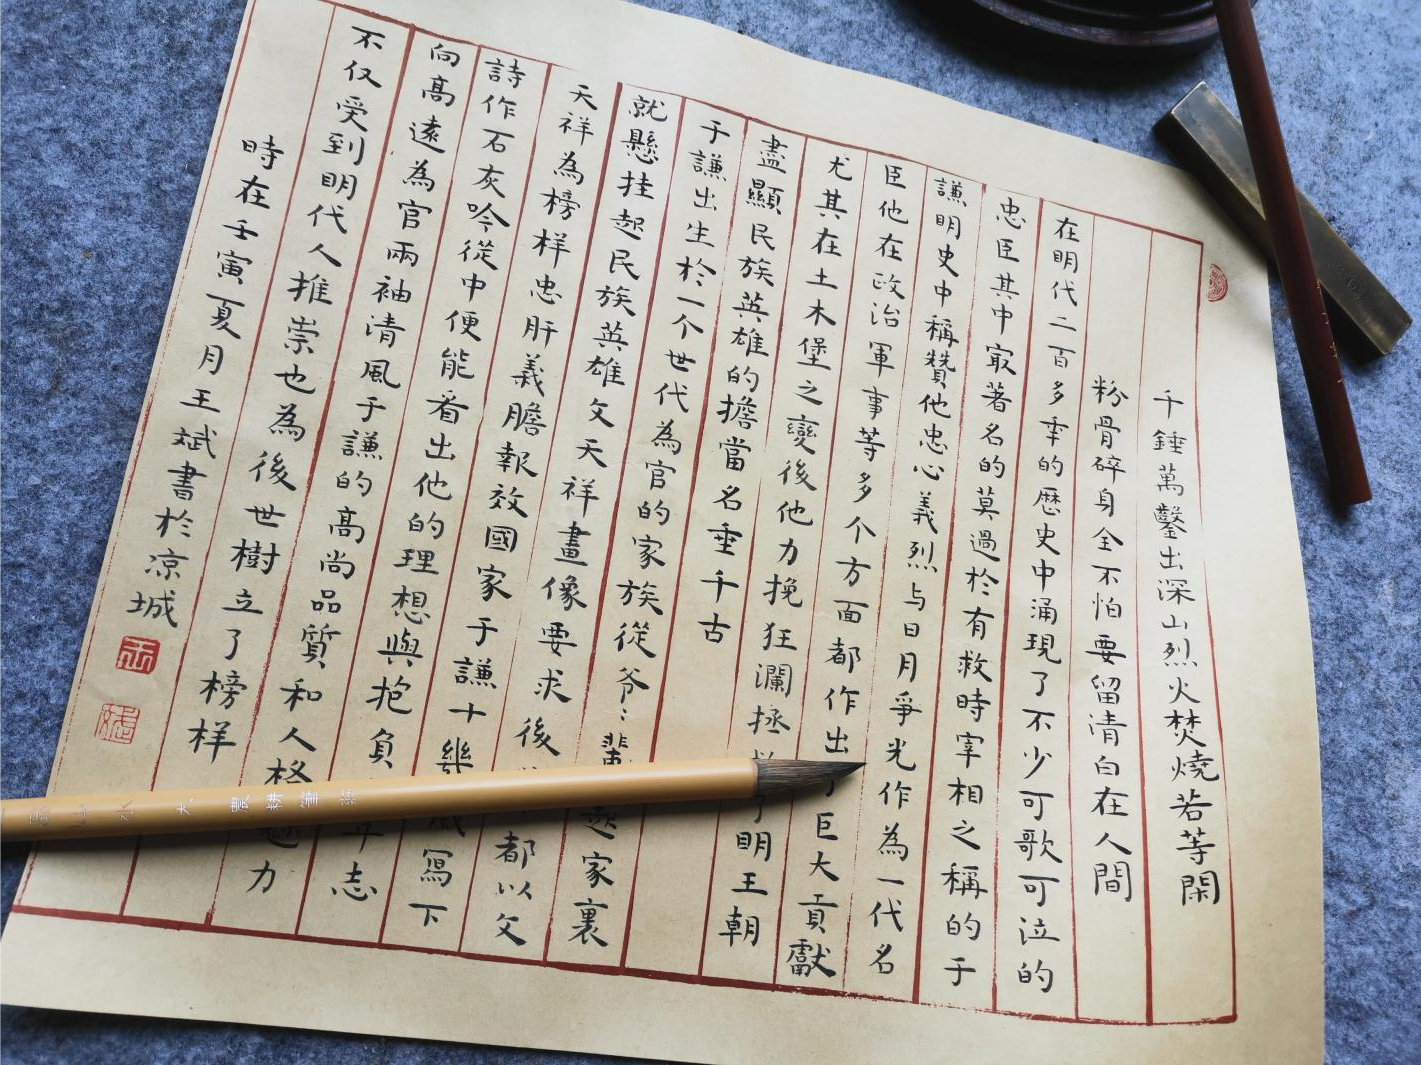 千錘萬鑿出深山烈火焚燒若等閑
粉骨碎身全不怕要留清白在人間
在明代二百多年的歷史中涌現了不少可歌可泣的
忠臣其中最著名的莫過於有救時宰相之稱的于
謙明史中稱贊他忠心義烈与日月爭光作為一代名
臣他在政治軍事等多个方面都作出了巨大貢獻
尤其在土木堡之變後他力挽狂瀾拯了明王朝
盡顯民族英雄的擔當名垂千古
于謙出生於一个世代為官的家族從爷〻輩起家裏
就懸挂起民族英雄文天祥畫像要求後都以文
天祥為榜样忠肝義膽報效國家于謙十幾歲寫下
詩作石灰吟從中便能看出他的理想與抱負年志
向高遠為官兩袖清風于謙的高尚品質和人格魅力
不仅受到明代人推崇也為後世樹立了榜样
時在壬寅夏月王斌書於凉城